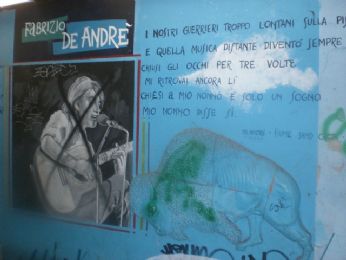 FABRIZIO
DE ANDRE
I NOSTRI GUERRIERI TROPPO LONTANI SULLA PIS
E QUELLA MUSICA DISTANTE DIVENTÒ SEMPRE
CHIUSI GLI OCCHI PER TRE VOLTE
MI RITROVAI ANCORA LÌ
CHIESI A MIO NONNO È SOLO UN SOGNO
MIO NONNO DISSE SÌ
FIUME SAND CREEK